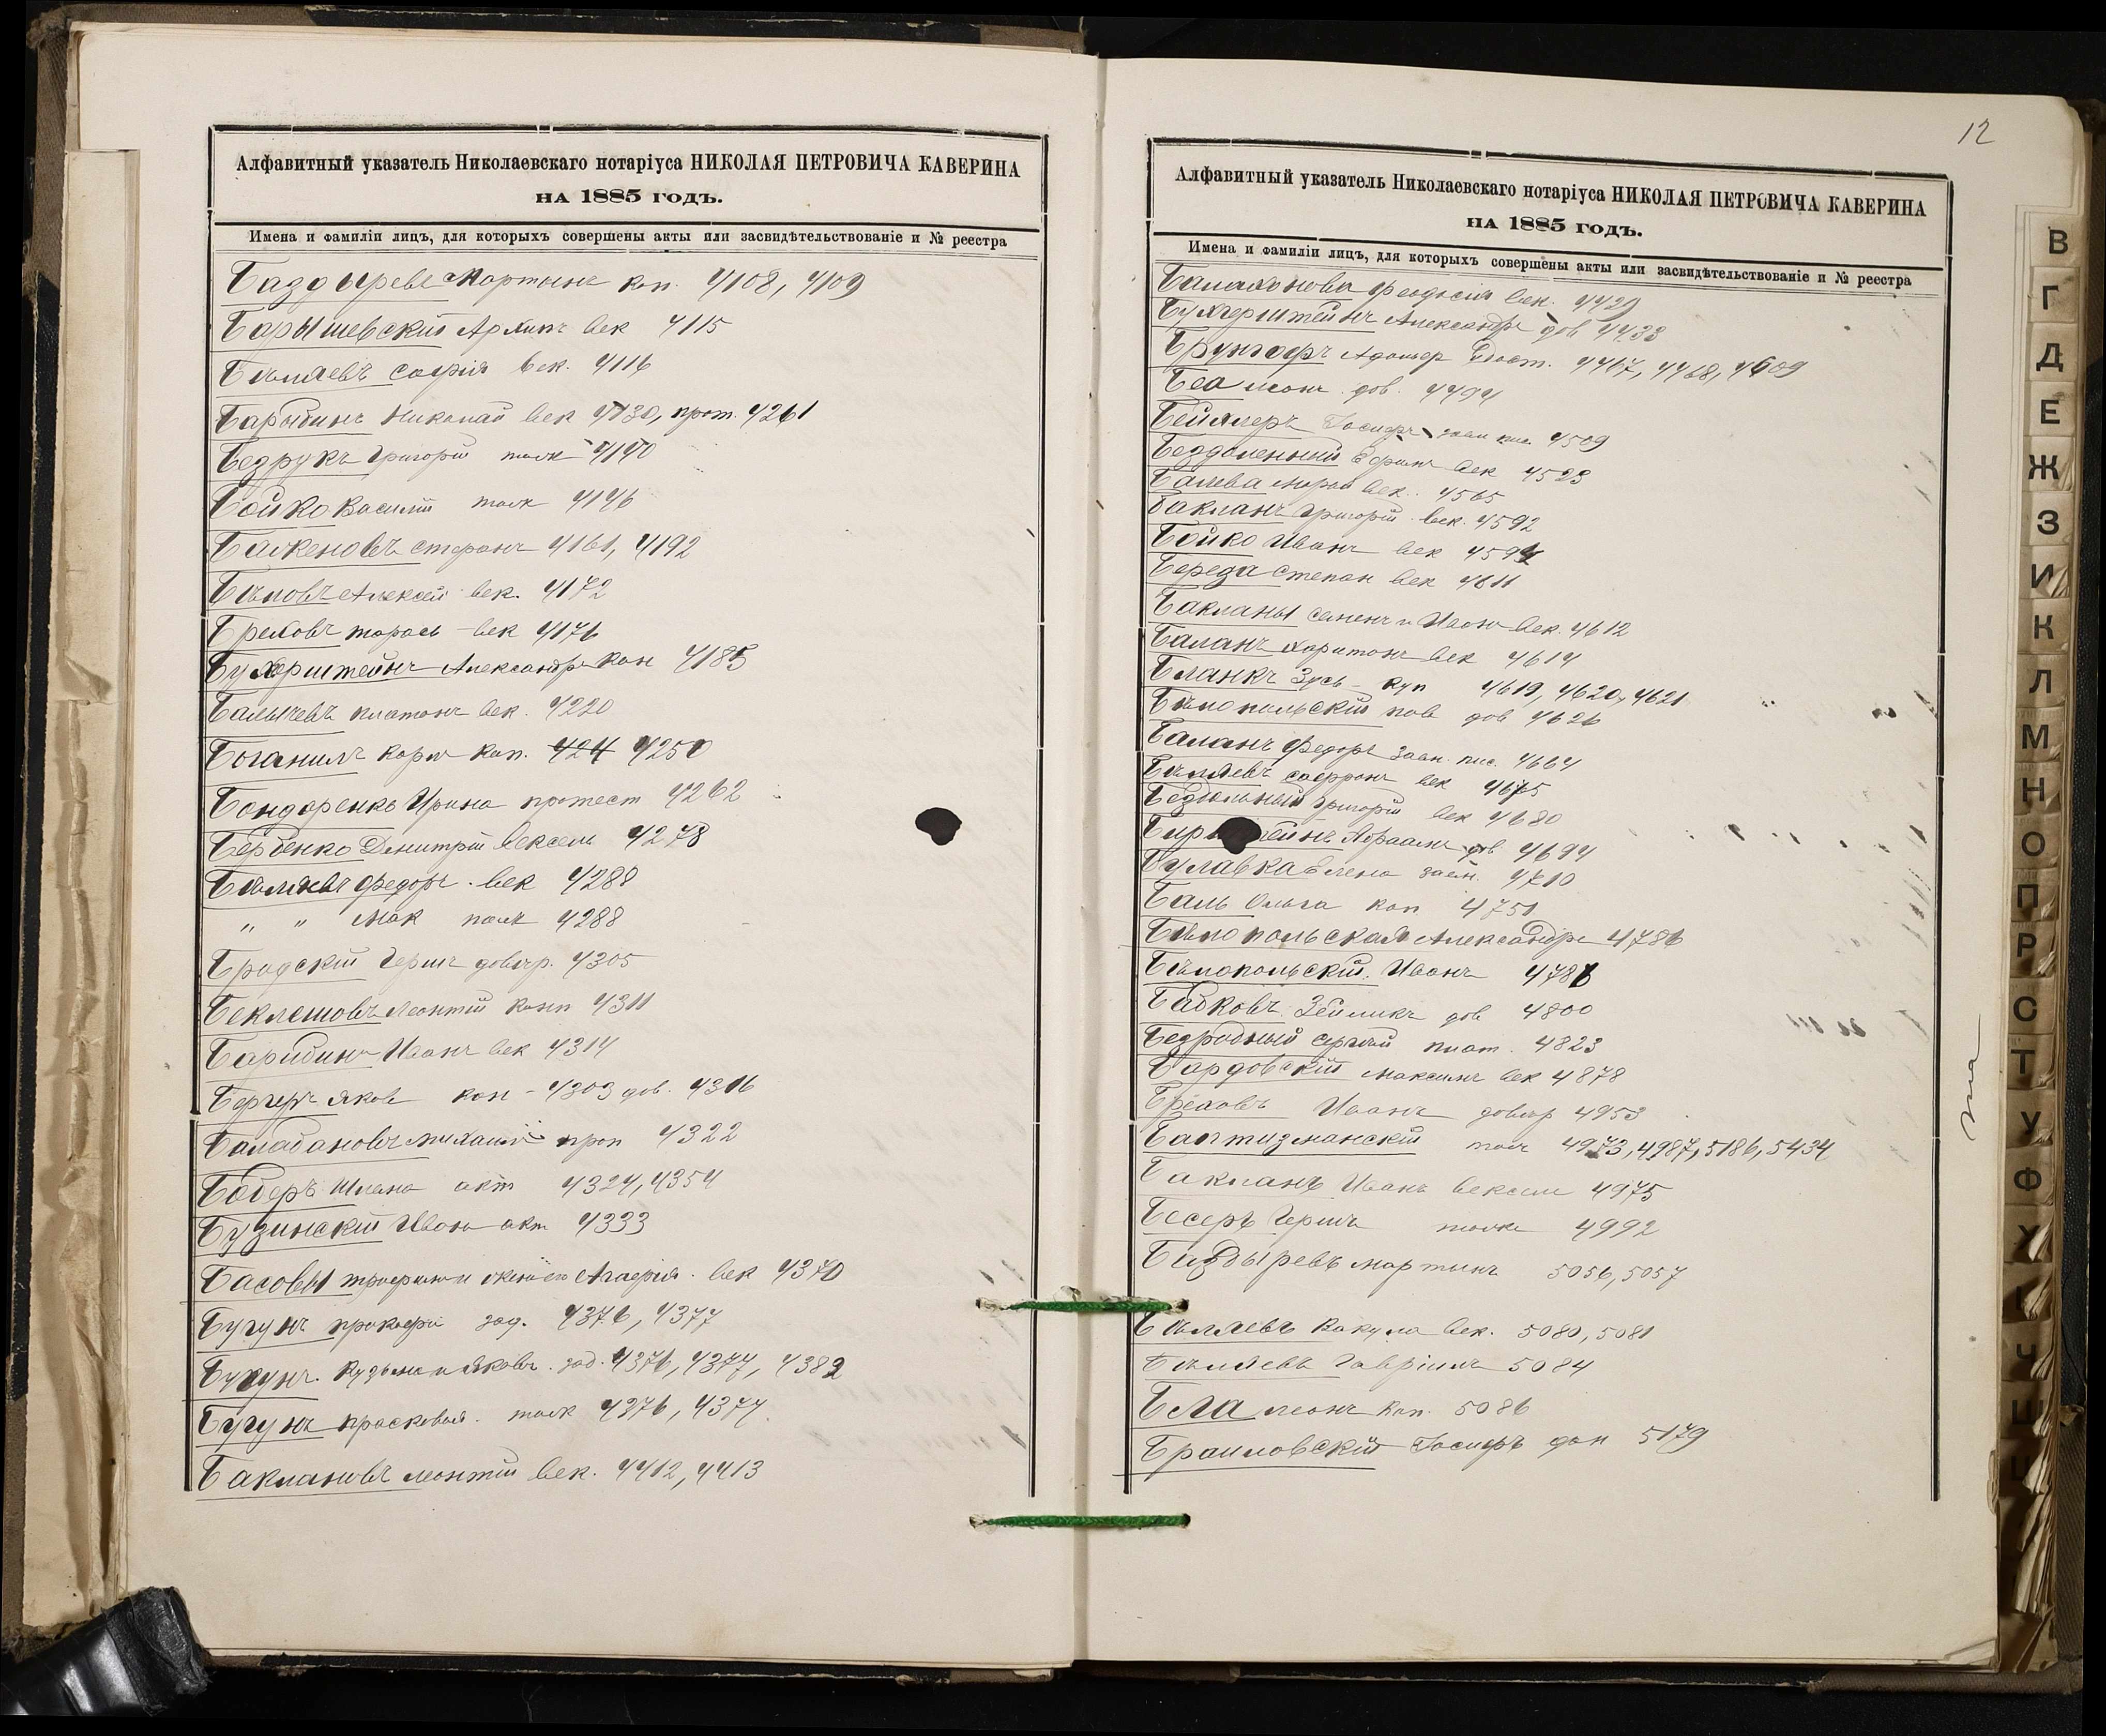 Алфавитный указатель Николаевскаго нотаріуса НИКОЛАЯ ПЕТРОВИЧА КАВЕРИНА
НА 1885 ГОДЪ.
Имена и фамиліи лицъ, для которыхъ совершены акты или засвидѣтельствованіе и № реестра
Баздыревъ Мартынъ коп. 4108, 4109
Барышевскій Архипъ век 4115
Бѣляевъ Софія век. 4116
Барыбинъ Николай век 4130, прот. 4261
Бедрукъ Григорій 4140
Бойко Василій 4146
Баженовъ Стефанъ 4161, 4192
Бѣловъ Алексѣй век. 4172
Бреховъ Тарасъ век 4176
Бухерштейнъ Александръ коп 4185
Балычевъ Платонъ век. 4220
Боганимъ коп. 424 4250
Бондаренко Ирина протест 4262
Бербенко Дмитрій вексель 4278
Бѣляевъ Федоръ век 4288
" " 4288
Бродскій Герш довѣр. 4305
Беклешовъ Леонтій 4311
Барибинъ Иванъ век 4314
Бергеръ Яковъ коп - 4303 дов. 4316
Балабановъ Михаилъ 4322
Боберъ акт 4324, 4354
Бузинскій Иванъ акт 4333
Басовы век 4370
Бугунъ Прокофій зад. 4376, 4377
Бугунъ Кузьма и Яковъ зад. 4376, 4377, 4382
Бугунъ Прасковья 4376, 4377
Баклановъ Леонтій век. 4412, 4413
12
Алфавитный указатель Николаевскаго нотаріуса НИКОЛАЯ ПЕТРОВИЧА КАВЕРИНА
НА 1885 ГОДЪ.
Имена и фамиліи лицъ, для которыхъ совершены акты или засвидѣтельствованіе и № реестра
Балахонова Феодосія век. 4429
Бухерштейнъ Александръ дов 4433
Брунгофъ Адольф 4467, 4468, 4609
Беа Леонъ дов. 4494
Іосифъ 4509
Ефимъ век 4523
Балева век. 4565
Бакланъ Григорій век. 4592
Бойко Иванъ век 4594
Береда Степан век 4611
Бакланы Семенъ и Иванъ век. 4612
Баланъ Харитонъ век 4614
Бланкъ Зусь куп 4619, 4620, 4621
Бѣлопольскій дов 4626
Баланъ Федоръ заем. пис. 4664
Бѣляевъ Софронъ век 4675
Григорій век 4680
Абраамъ дов 4694
Булавка Елена заем. 4710
Баль Ольга коп 4751
Бѣлопольская Александра 4786
Бѣлопольскій Иванъ 4786
Бабковъ Зейликъ дов 4800
Безродный Сергѣй 4823
Бардовскій Максимъ век 4878
Бреховъ Иванъ довѣр 4953
Баптизманскій 4973, 4987, 5186, 5434
Бакланъ Иванъ вексель 4975
Бесеръ Гершъ 4992
Баздыревъ Мартинъ 5056, 5057
Бѣляевъ Вакула век. 5080, 5081
Бѣляевъ Гавріилъ 5084
Беа Леонъ коп. 5086
Браиловскій Іосифъ 5179
В
Г
Д
Е
Ж
З
И
К
Л
М
Н
О
П
Р
С
Т
У
Ф
Х
Ч
Ш